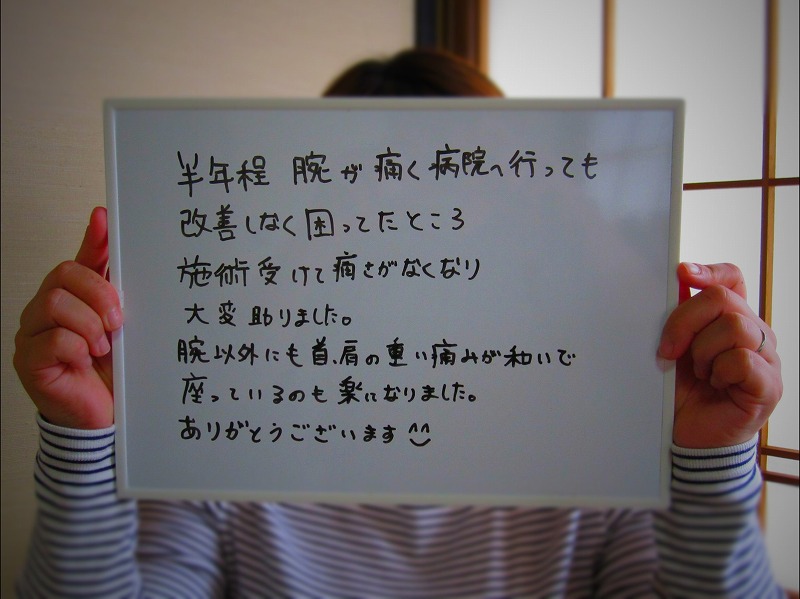 半年程 腕が痛く病院へ行っても
改善しなく困ってたところ
施術受けて痛さがなくなり
大変助りました。
腕以外にも首、肩の重い痛みが和いで
座っているのも楽になりました。
ありがとうございます^^